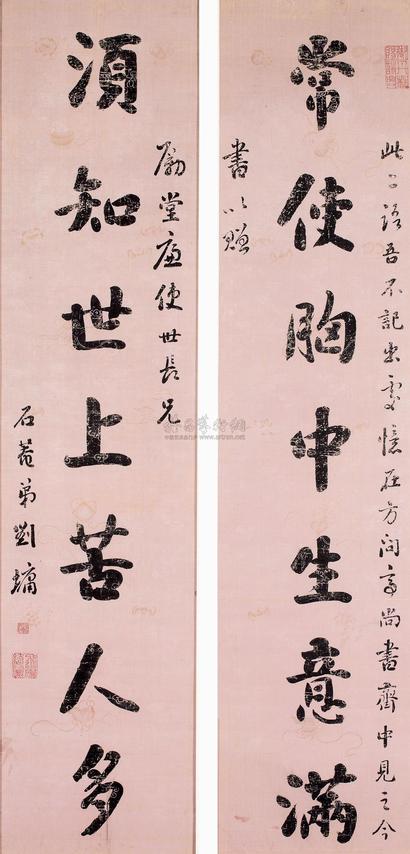 此二語吾不記出處憶在方問亭尚書齋中見之今
常使胸中生意滿
書以贈
勵堂廉使世長兄
須知世上苦人多
石菴弟劉墉